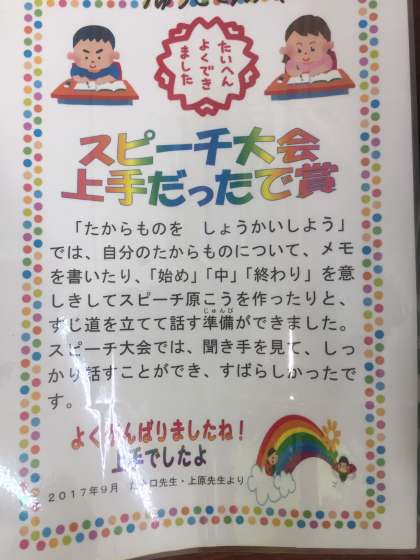 たいへん
よくでき
ました
スピーチ大会
上手だったで賞
「たからものを　しょうかいしよう」
では、自分のたからものについて、メモ
を書いたり、「始め」「中」「終わり」を意
しきしてスピーチ原こうを作ったりと、
すじ道を立てて話す準備ができました。
じゅんび
スピーチ大会では、聞き手を見て、しっ
かり話すことができ、すばらしかったで
す。
よくがんばりましたね！
上手でしたよ
2017年9月　口先生・上原先生より